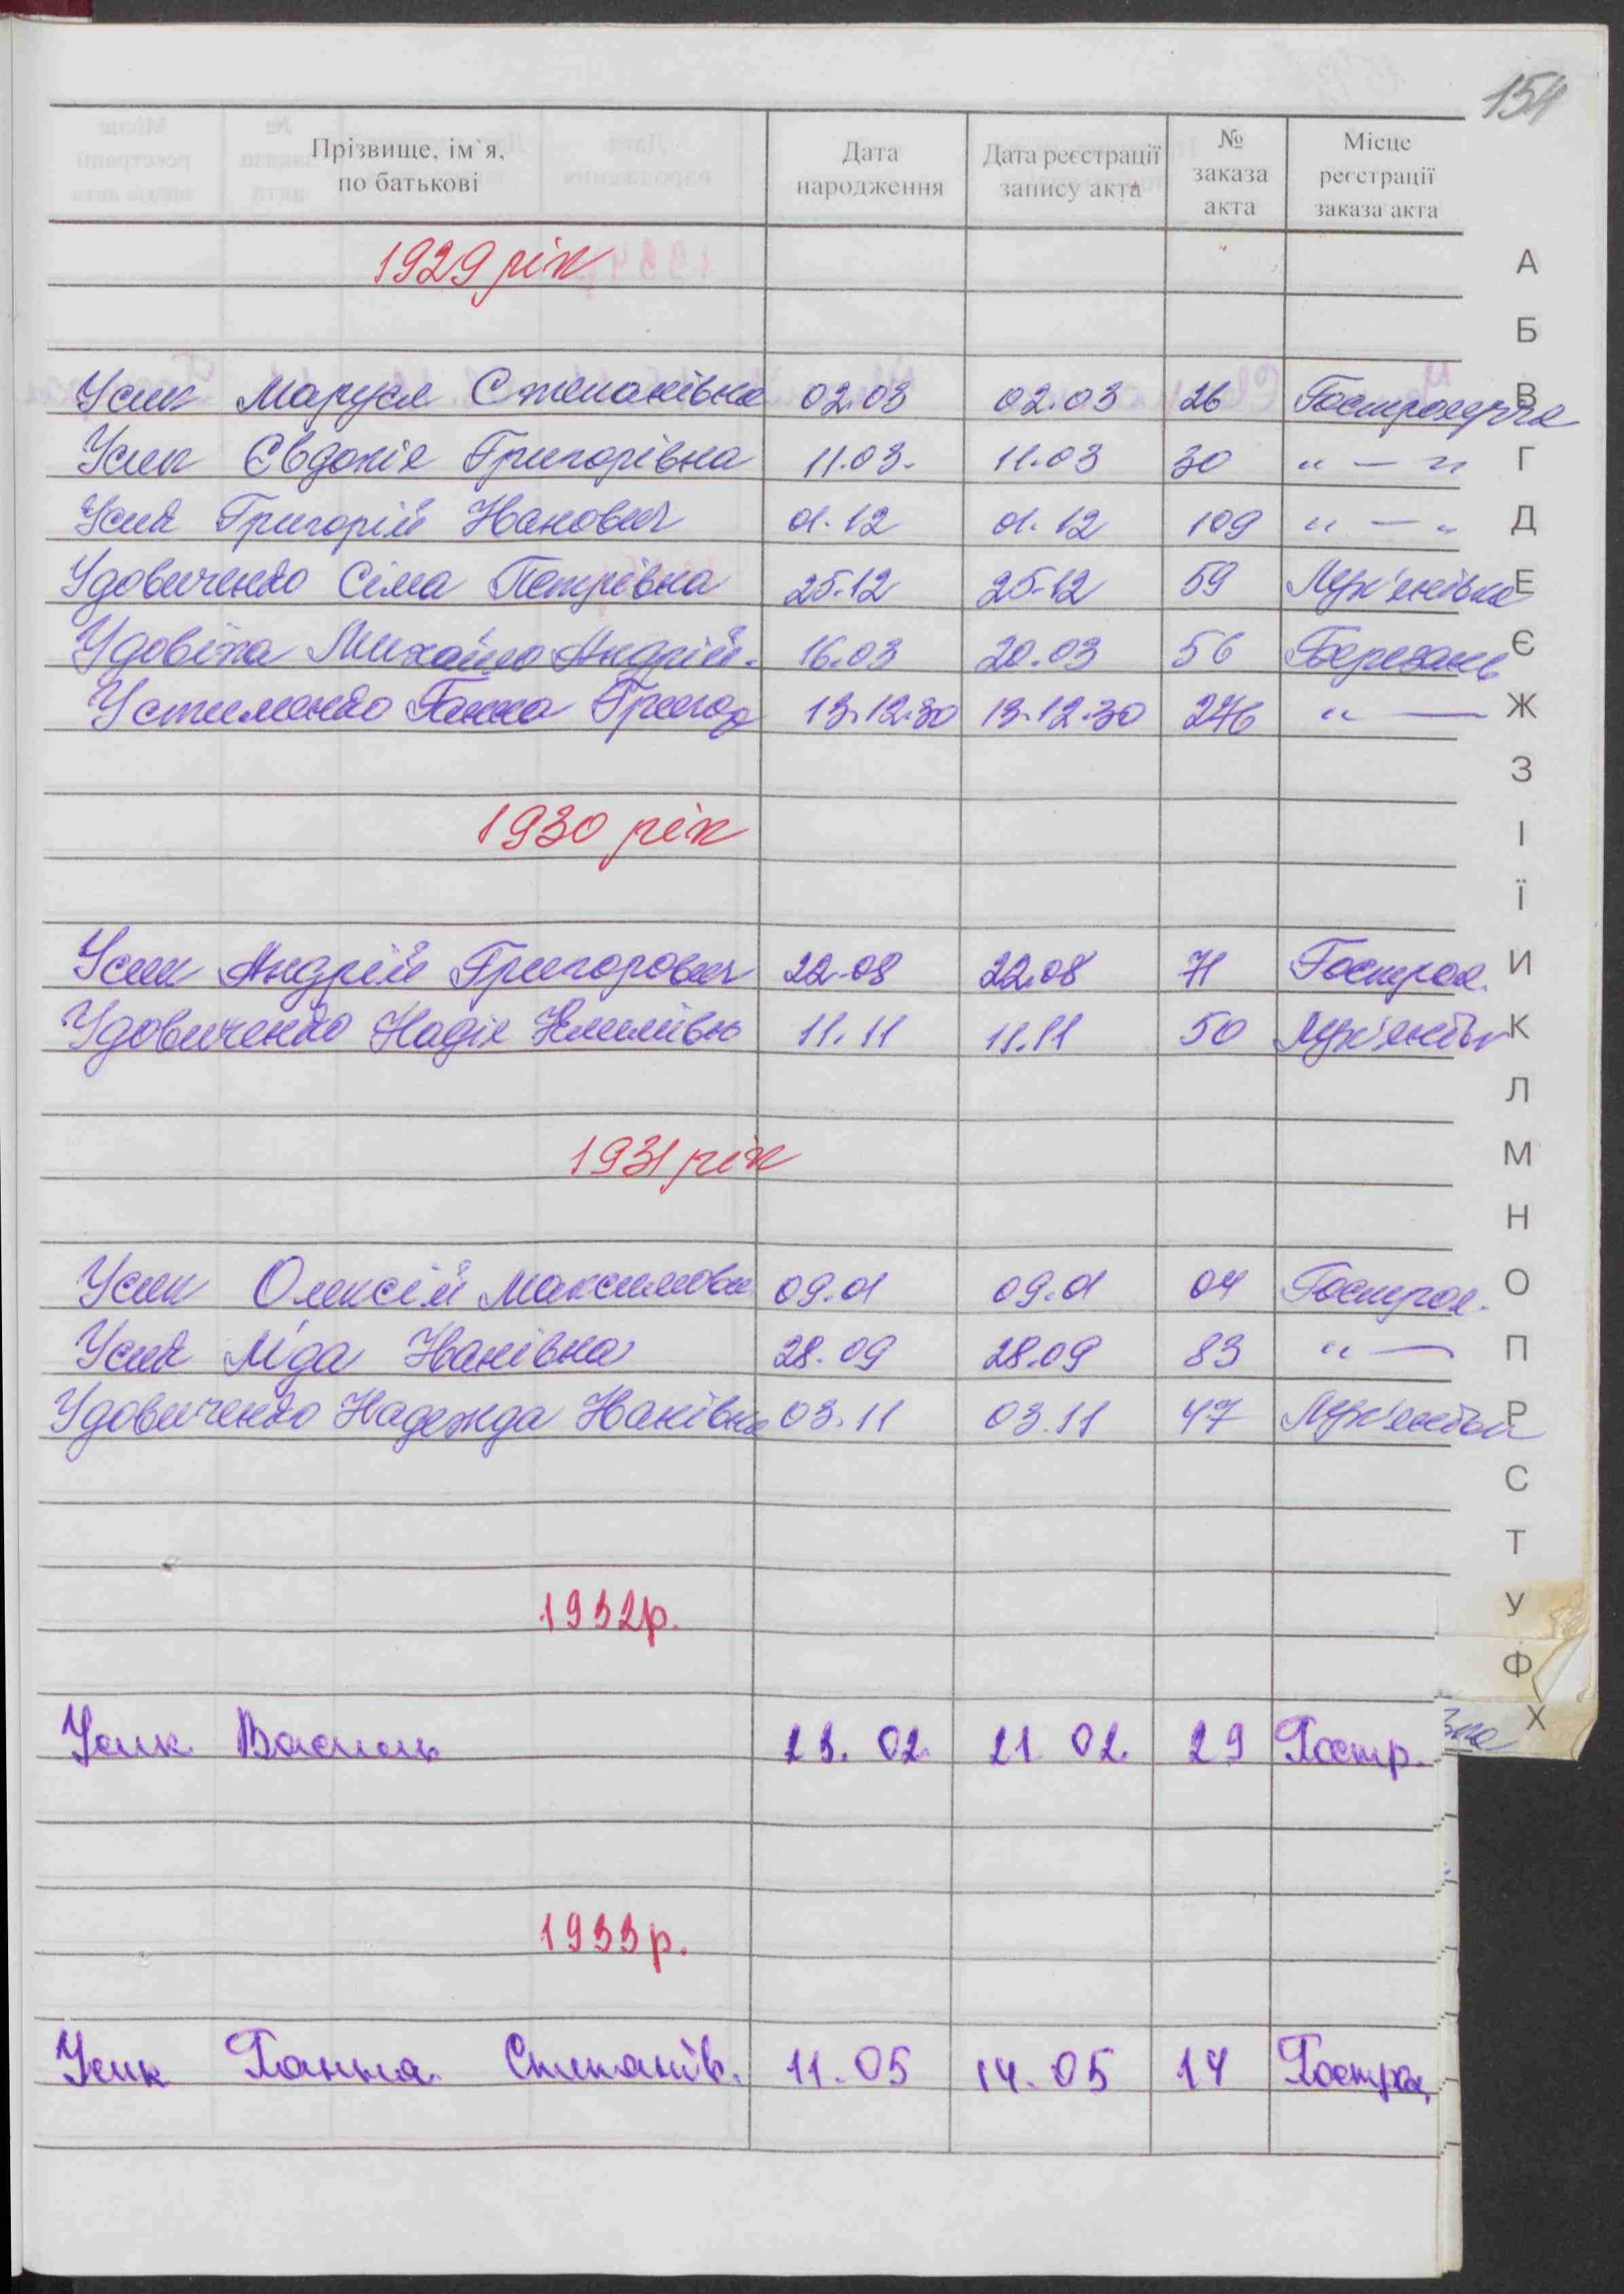 154
Прізвище, ім`я, по батькові Дата народження Дата реєстрації запису акта № заказа акта Місце реєстрації заказа акта
1929 рік
Усик Маруся Степанівна 02.03 02.03 26 Гостролуччя
Усик Євдокія Григорівна 11.03. 11.03 30 " — "
Усик Григорій Іванович 01.12 01.12 109 " — "
Удовиченко Сіма Петрівна 25.12 25.12 59 Лук'янівка
Удовіка Михайло Андрій. 16.03 20.03 56 Березань
Устименко Ганна Григор 13.12.30 13.12.30 276 " —
1930 рік
Усик Андрій Григорович 22.08 22.08 71 Гострол.
Удовиченко Надія Климівн 11.11 11.11 50 Лук'янівк
1931 рік
Усик Олексій Максимови 09.01 09.01 04 Гострол.
Усик Ліда Іванівна 28.09 28.09 83 " —
Удовиченко Надежда Іванівна 03.11 03.11 47 Лук'янівка
1932р.
Усик Василь 21. 02. 21. 02. 29 Гостр.
1933р.
Усик Ганна Степанів. 11.05 14.05 14 Гострол.
А
Б
В
Г
Д
Е
Є
Ж
З
І
Ї
И
К
Л
М
Н
О
П
Р
С
Т
У
Ф
Х